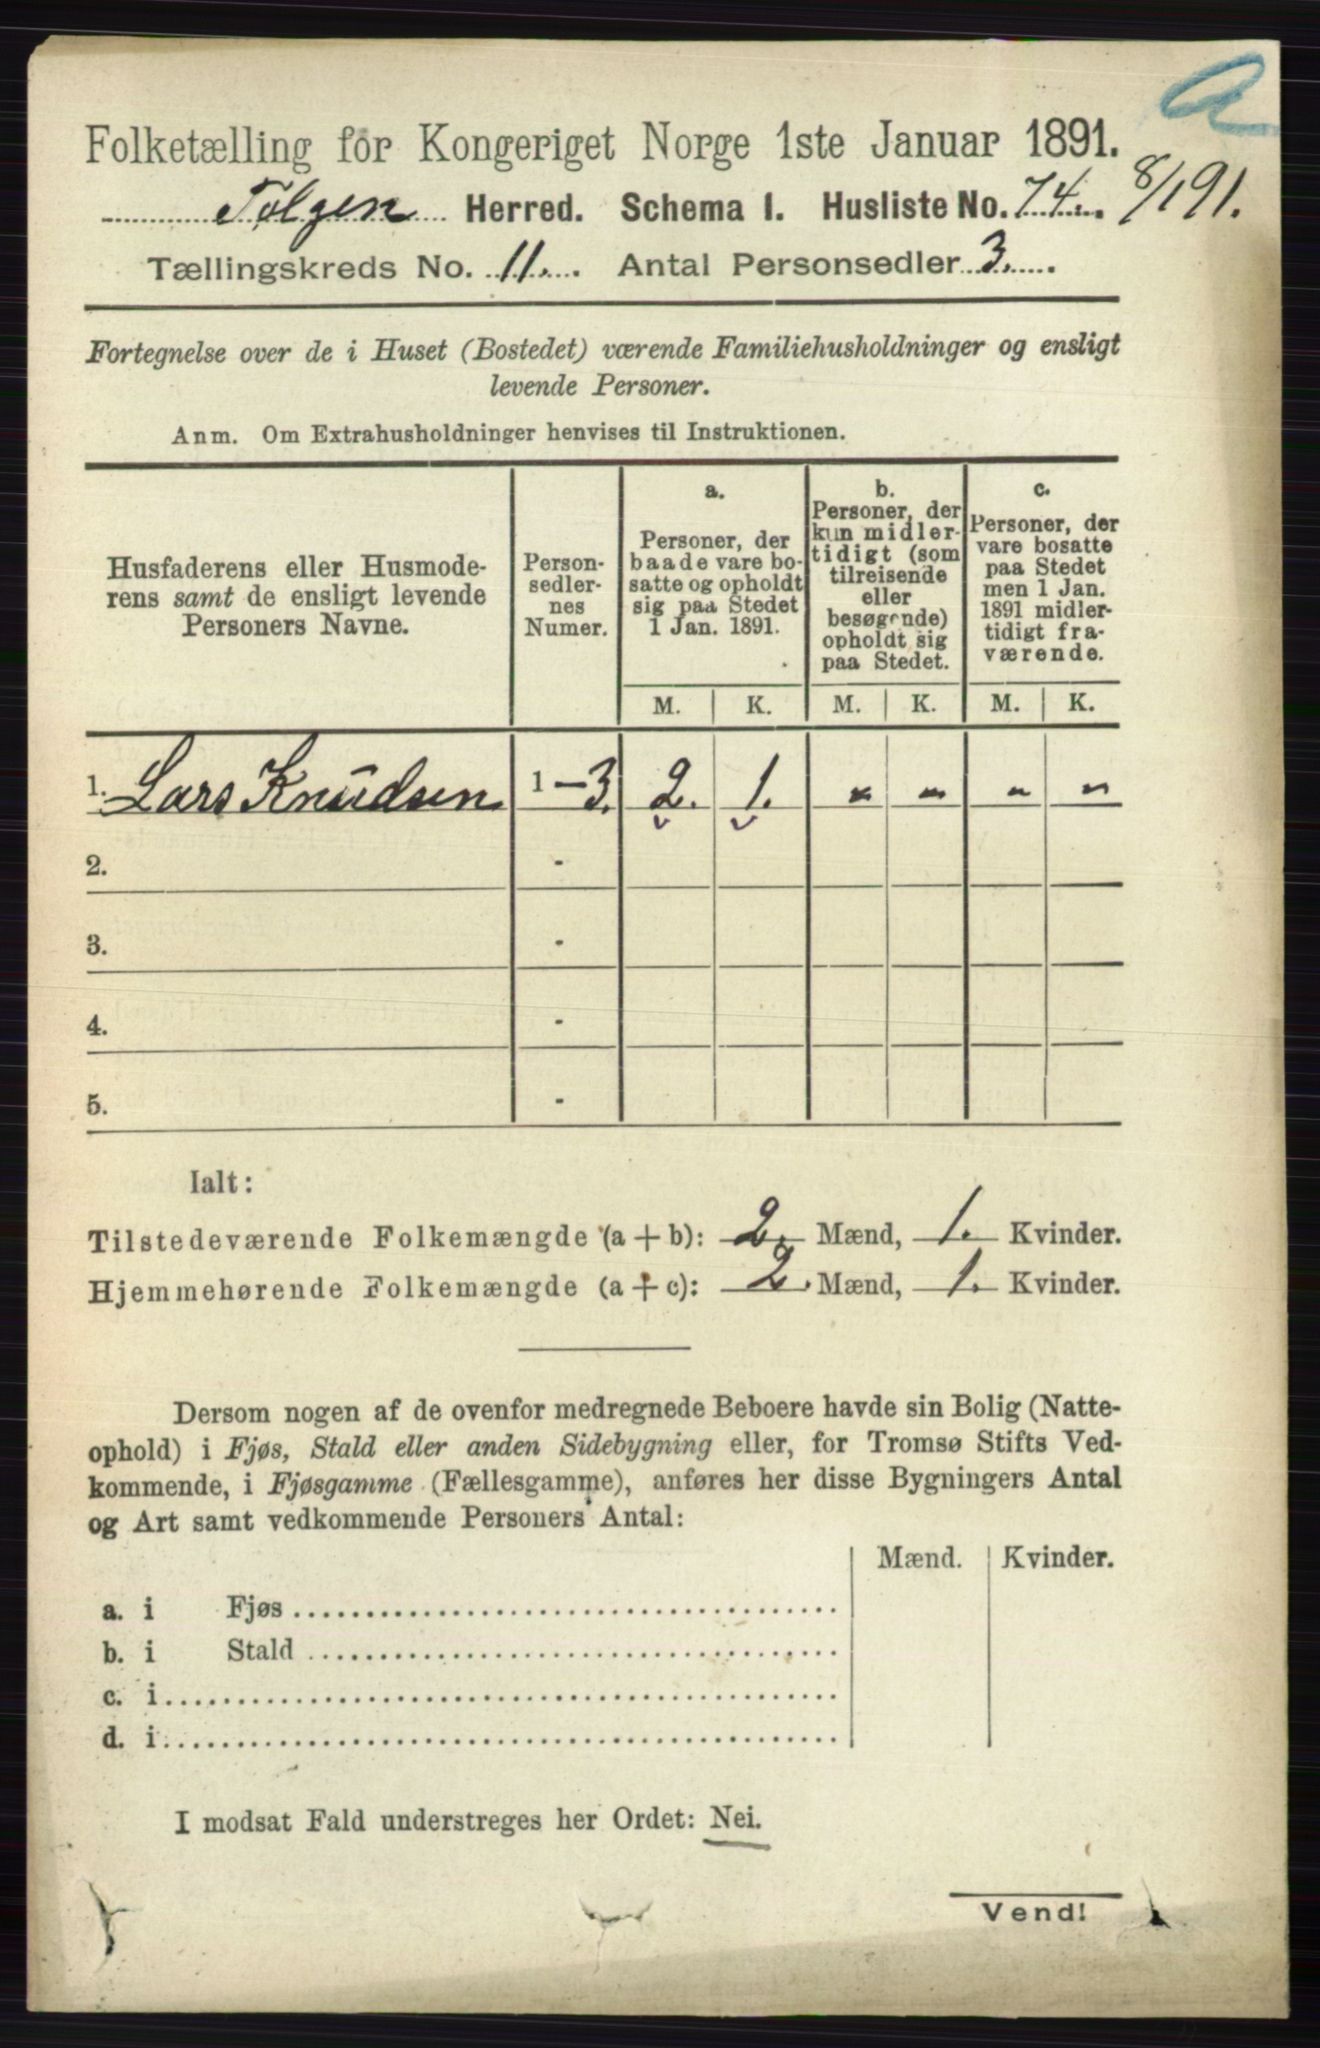 a
Folketælling for Kongeriget Norge 1ste Januar 1891.
Tolgen Herred. Schema I. Husliste No. 74. 8/191.
Tællingskreds No. 11. Antal Personsedler 3.
Fortegnelse over de i Huset (Bostedet) værende Familiehusholdninger og ensligt
levende Personer.
Anm. Om Extrahusholdninger henvises til Instruktionen.
Husfaderens eller Husmode-
rens samt de ensligt levende
Personers Navne.
Person-
sedler-
nes
Numer.
a.
Personer, der
baade vare bo-
satte og opholdt
sig paa Stedet
1 Jan. 1891.
b.
Personer, der
kun midler-
tidigt (som
tilreisende
eller
besøgende)
opholdt sig
paa Stedet.
c.
Personer, der
vare bosatte
paa Stedet
men 1 Jan.
1891 midler-
tidigt fra-
værende.
M. K. M. K. M. K.
1. Lars Knudsen 1 - 3. 2. 1. " " " "
2. -
3. -
4. -
5. -
Ialt:
Tilstedeværende Folkemængde (a + b): 2. Mænd, 1. Kvinder.
Hjemmehørende Folkemængde (a + c): 2. Mænd, 1. Kvinder.
Dersom nogen af de ovenfor medregnede Beboere havde sin Bolig (Natte-
ophold) i Fjøs, Stald eller anden Sidebygning eller, for Tromsø Stifts Ved-
kommende, i Fjøsgamme (Fællesgamme), anføres her disse Bygningers Antal
og Art samt vedkommende Personers Antal:
Mænd. Kvinder.
a. i Fjøs
b. i Stald
c. i
d. i
I modsat Fald understreges her Ordet: Nei.
Vend!